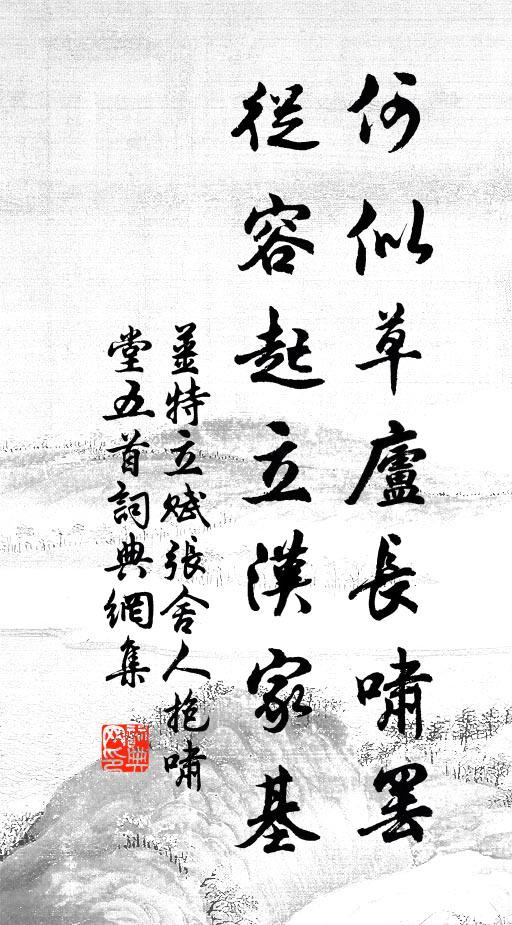 何似草廬長嘯罷
從容起立漢家基
姜特立賦張舍人抱嘯
堂五首詞典網集